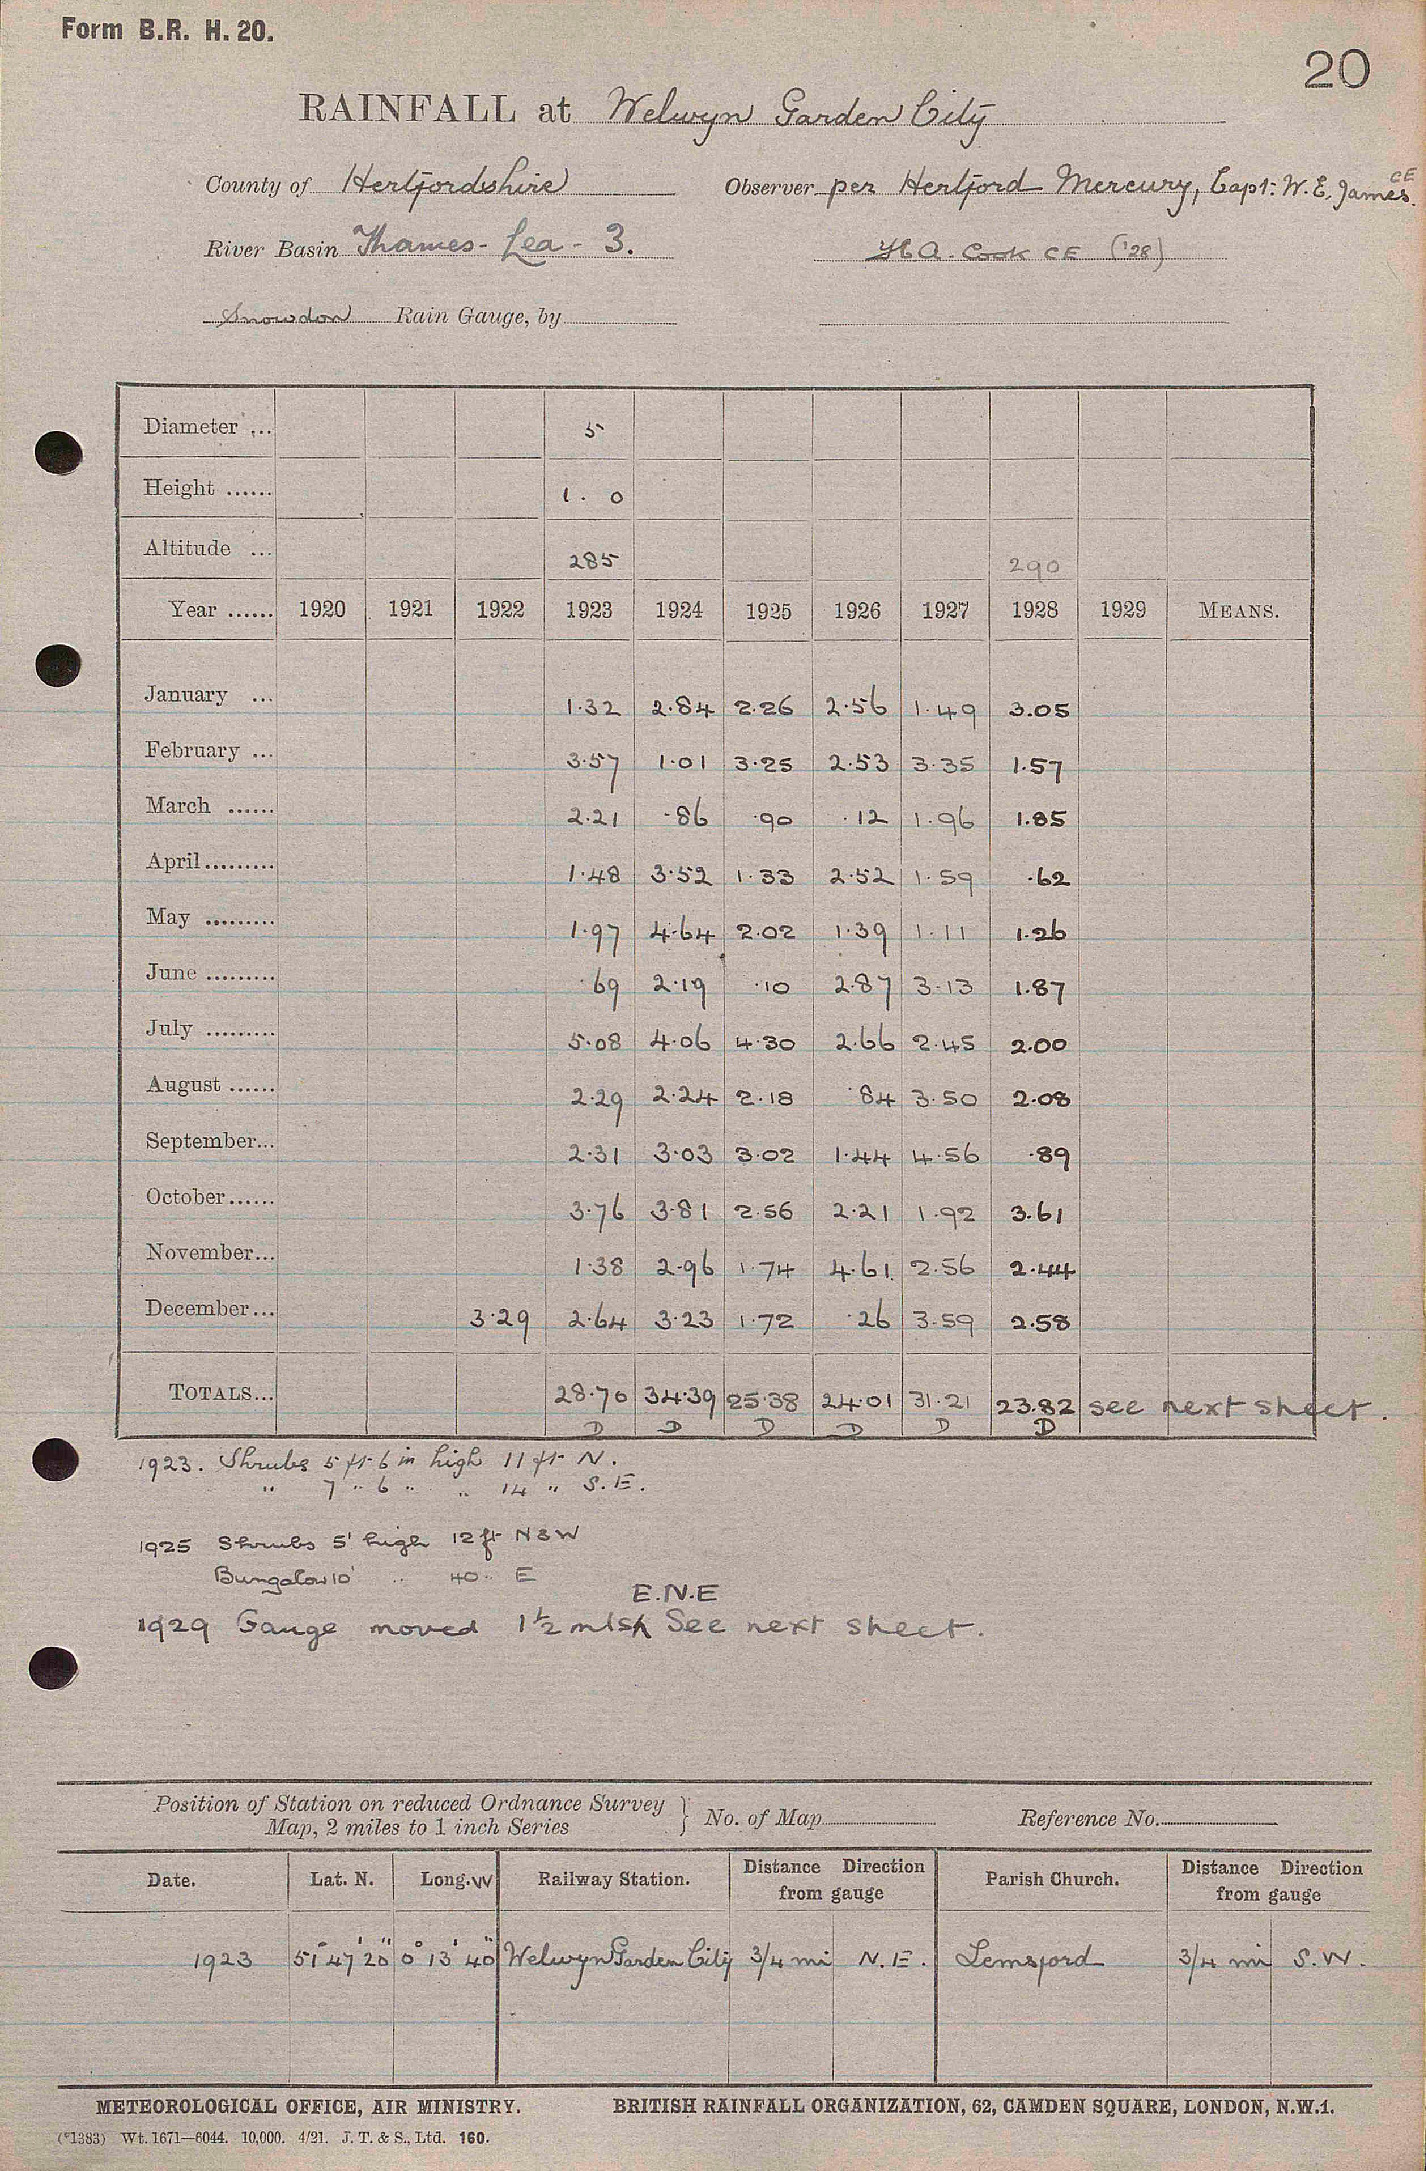 Form B.R. H. 20.
20
RAINFALL at Welwyn Garden City
County of Hertfordshire Observer per Hertford Mercury, Capt: W. E. James. CE
River Basin Thames - Lea - 3. H.A. Cook CE ('28)
Snowdon Rain Gauge, by
Diameter ... 5
Height ...... 1. 0
Altitude ... 285 290
Year ...... 1920 1921 1922 1923 1924 1925 1926 1927 1928 1929 MEANS.
January ... 1.32 2.84 2.26 2.56 1.49 3.05
February ... 3.57 1.01 3.25 2.53 3.35 1.57
March ...... 2.21 .86 .90 .12 1.96 1.85
April......... 1.48 3.52 1.33 2.52 1.59 .62
May ......... 1.97 4.64 2.02 1.39 1.11 1.26
June ......... .69 2.19 .10 2.87 3.13 1.87
July ......... 5.08 4.06 4.30 2.66 2.45 2.00
August ...... 2.29 2.24 2.18 .84 3.50 2.08
September... 2.31 3.03 3.02 1.44 4.56 .89
October...... 3.76 3.81 2.56 2.21 1.92 3.61
November... 1.38 2.96 1.74 4.61 2.56 2.44
December... 3.29 2.64 3.23 1.72 .26 3.59 2.58
TOTALS... 28.70 34.39 25.38 24.01 31.21 23.82 see next sheet.
D D D D D D
1923. Shrubs 5 ft 6 in high 11 ft N.
" 7 " 6 " " 14 " S.E.
1925 Shrubs 5' high 12 ft N & W
Bungalow 10' " 40 " E
E.N.E
1929 Gauge moved 1½ mls See next sheet.
Position of Station on reduced Ordnance Survey
Map, 2 miles to 1 inch Series } No. of Map Reference No.
Date. Lat. N. Long. W Railway Station. Distance Direction from gauge Parish Church. Distance Direction from gauge
1923 51° 47' 20" 0° 13' 40" Welwyn Garden City 3/4 mi N.E. Lemsford 3/4 mi S.W.
METEOROLOGICAL OFFICE, AIR MINISTRY. BRITISH RAINFALL ORGANIZATION, 62, CAMDEN SQUARE, LONDON, N.W.1.
(*1383) Wt. 1671—6044. 10,000. 4/21. J. T. & S., Ltd. 160.